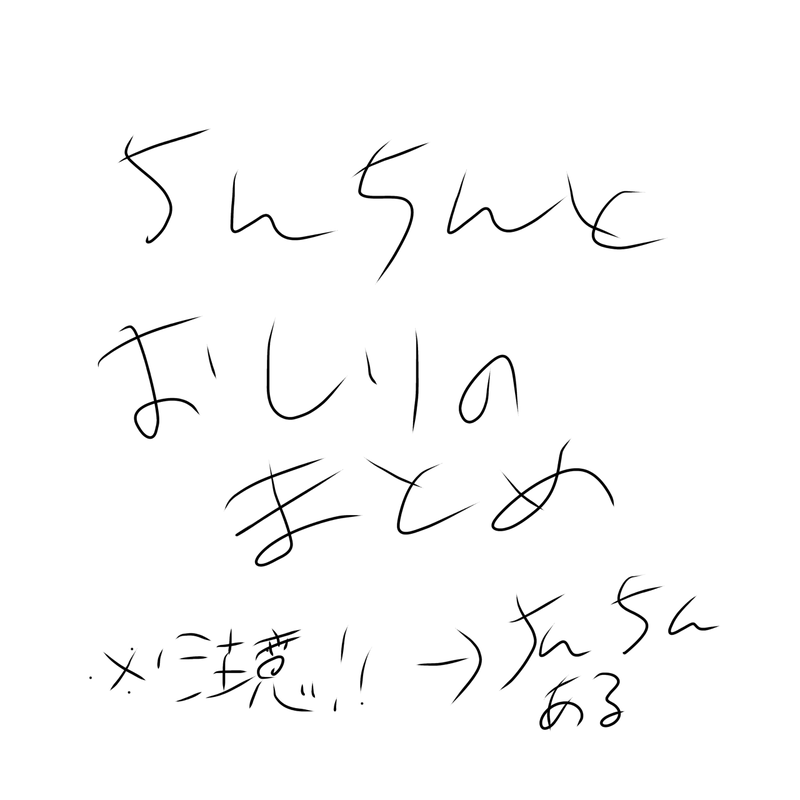 ちんちんと
おしりの
まとめ
※注意!! →ちんちん
ある